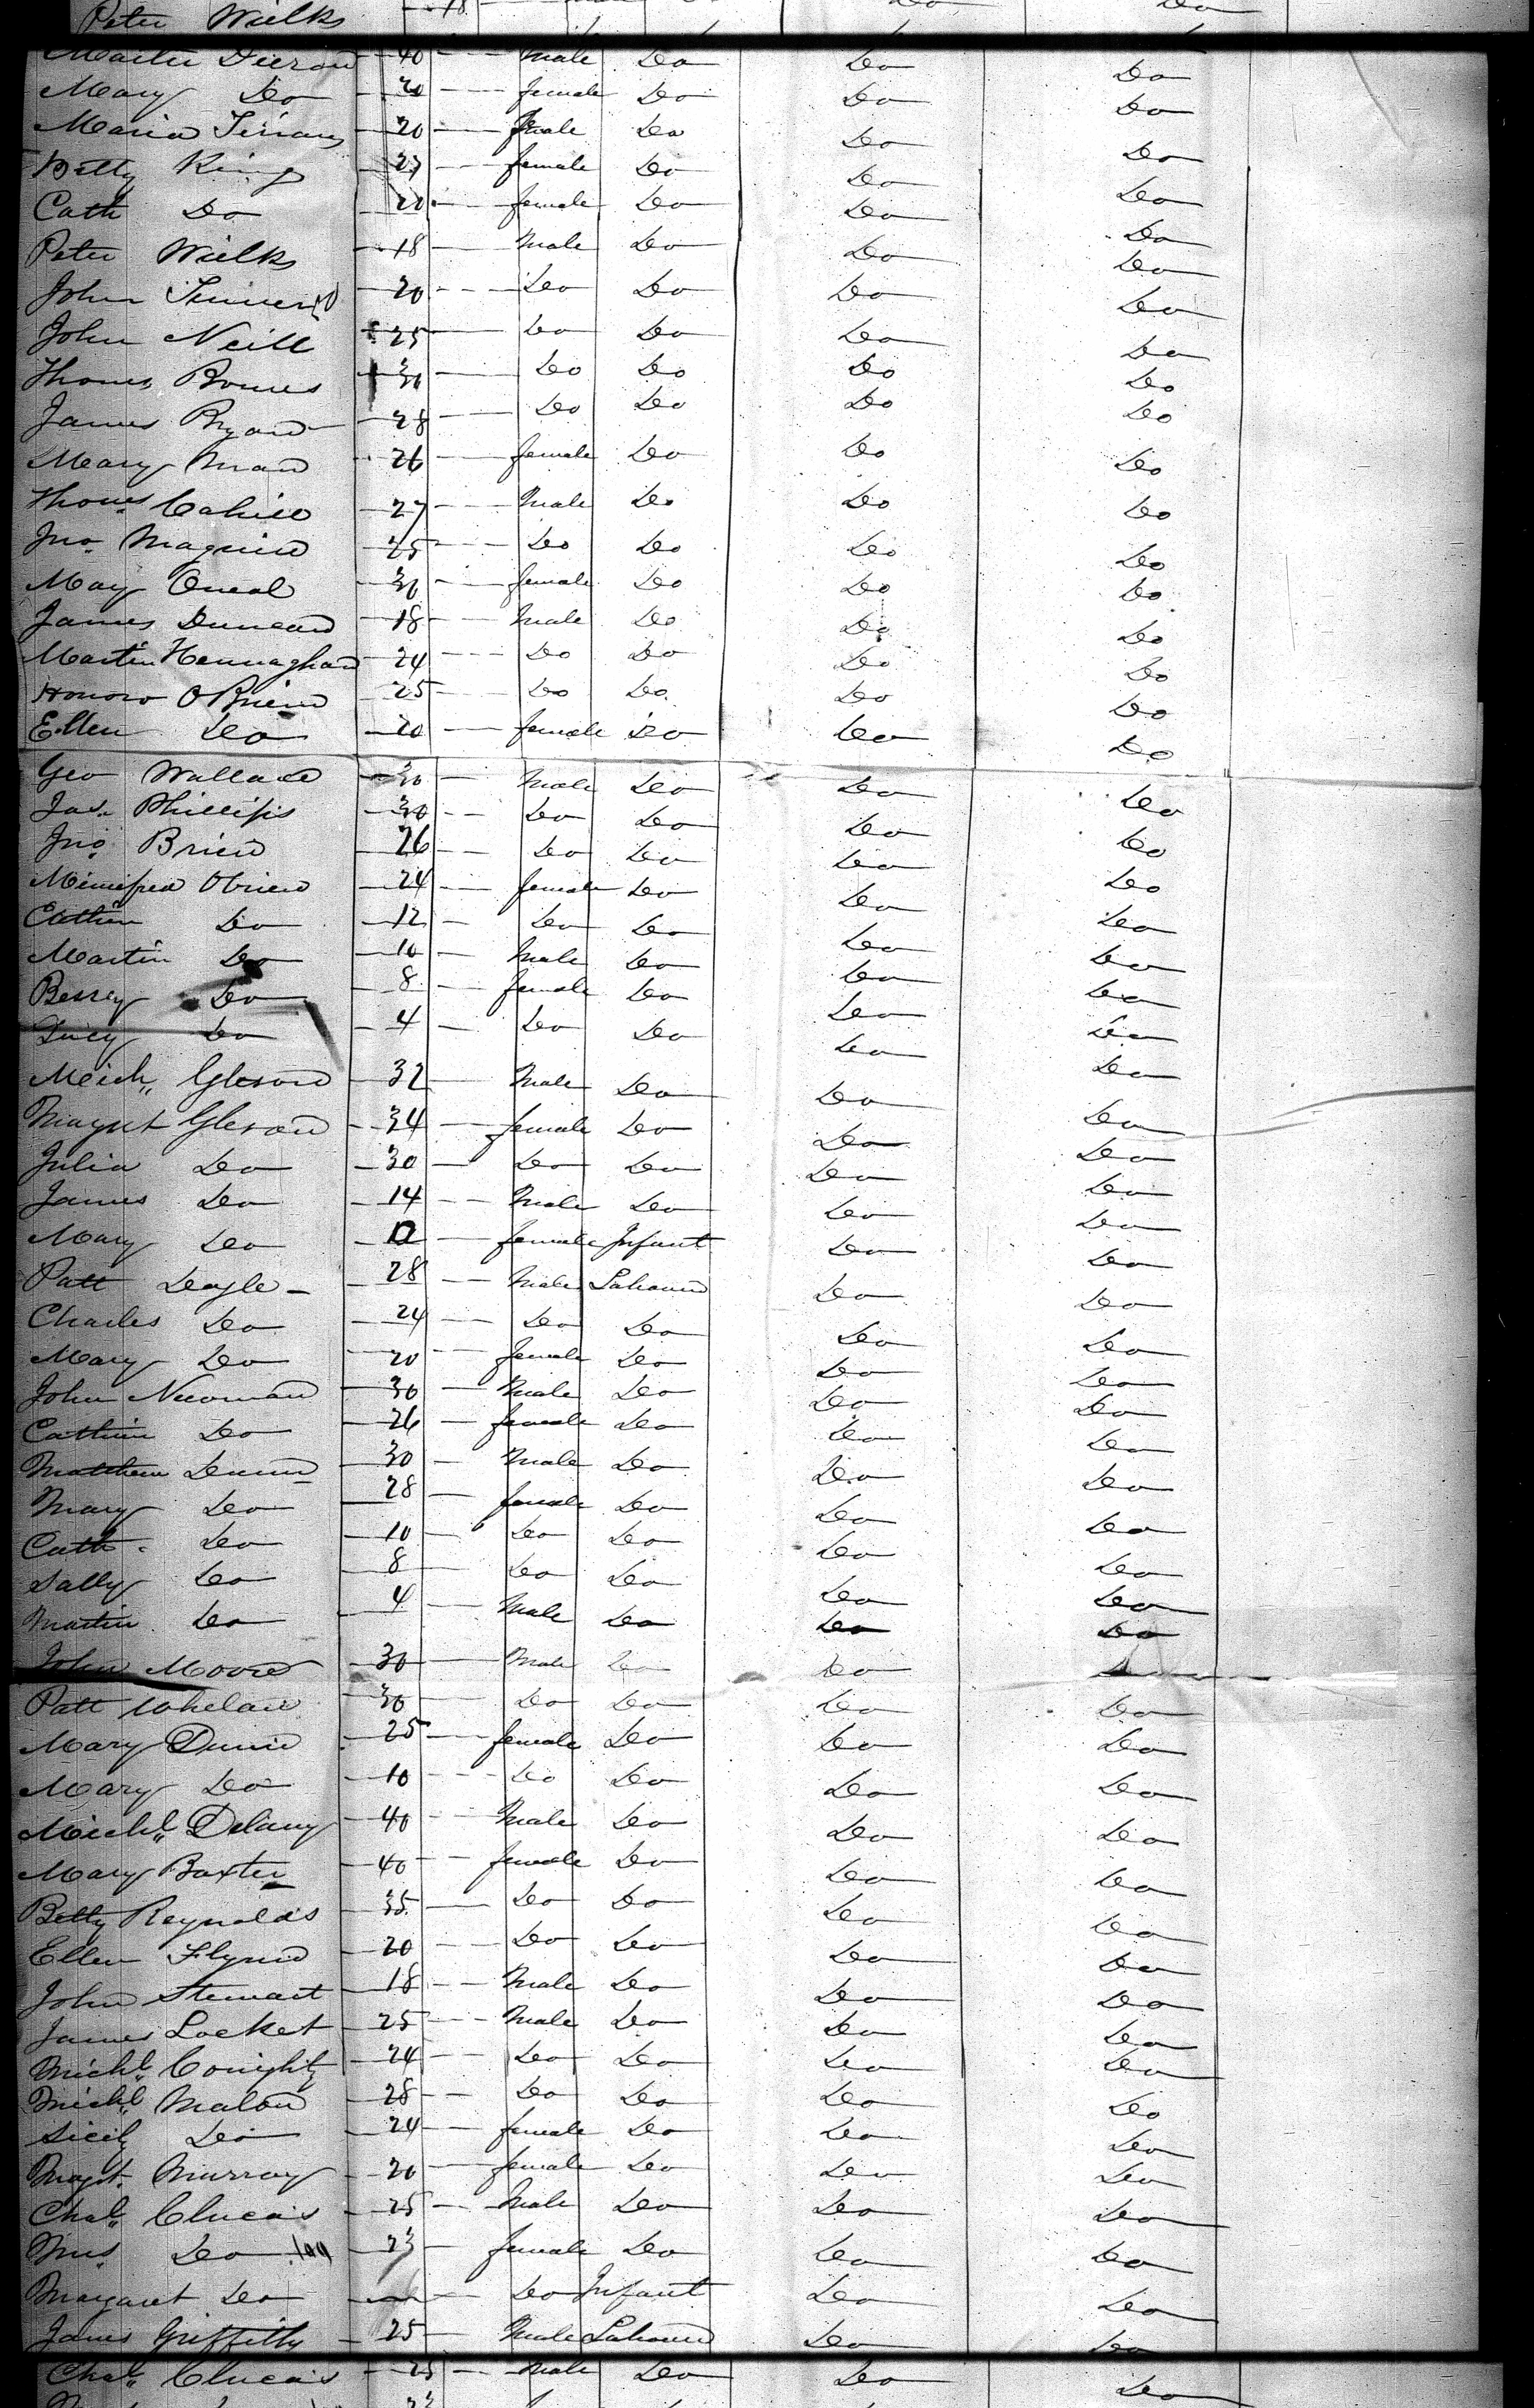 Peter Wielks 18 Do Do
Martin 40 Male Do Do Do
Mary Do 30 female Do Do Do
Maria 20 female Do Do Do
Betty King 27 female Do Do Do
Cath Do 20 female Do Do Do
Peter Wielks 18 Male Do Do Do
John 20 Do Do Do Do
John Neill 25 Do Do Do Do
Thomas 30 Do Do Do Do
James Ryan 28 Do Do Do Do
Mary Man 26 female Do Do Do
Thoms Cahill 27 Male Do Do Do
Jno Maguire 25 Do Do Do Do
May Oneal 30 female Do Do Do
James Duncan 18 Male Do Do Do
Martin Hannaghan 24 Do Do Do Do
Honoro OBrien 25 Do Do Do Do
Ellen Do 20 female Do Do Do
Geo Wallace 30 Male Do Do Do
Jas. Phillips 30 Do Do Do Do
Jno Brien 26 Do Do Do Do
Winnifred Obrien 24 female Do Do Do
Cathrin Do 12 Do Do Do Do
Martin Do 10 Male Do Do Do
Bessey Do 8 female Do Do Do
Lucy Do 4 Do Do Do Do
Mich Gleson 32 Male Do Do Do
Magret Gleson 34 female Do Do Do
Julia Do 30 Do Do Do Do
James Do 14 Male Do Do Do
Mary Do female Infant Do Do
Patt Doyle 28 Male Labourer Do Do
Charles Do 24 Do Do Do Do
Mary Do 20 female Do Do Do
John Newman 30 Male Do Do Do
Cathrin Do 26 female Do Do Do
Matthew Dunn 30 Male Do Do Do
Mary Do 28 female Do Do Do
Cath Do 10 Do Do Do Do
Sally Do 8 Do Do Do Do
Martin Do 4 Male Do Do Do
John Moore 30 Male Do Do Do
Patt Whelan 30 Do Do Do Do
Mary Dunn 25 female Do Do Do
Mary Do 10 Do Do Do Do
Michl Delany 40 Male Do Do Do
Mary Baxter 40 female Do Do Do
Betty Reynolds 35 Do Do Do Do
Ellen Flynn 20 Do Do Do Do
John Stewart 18 Male Do Do Do
James Locket 25 Male Do Do Do
Michl 24 Do Do Do Do
Michl Malon 28 Do Do Do Do
Sicily Do 24 female Do Do Do
Magt. Murray 20 female Do Do Do
Chal. Clucas 25 Male Do Do Do
Mrs Do 23 female Do Do Do
Margaret Do Do Infant Do Do
James Griffith 25 Male Labourer Do Do
Chal. Clucas 25 Male Do Do Do